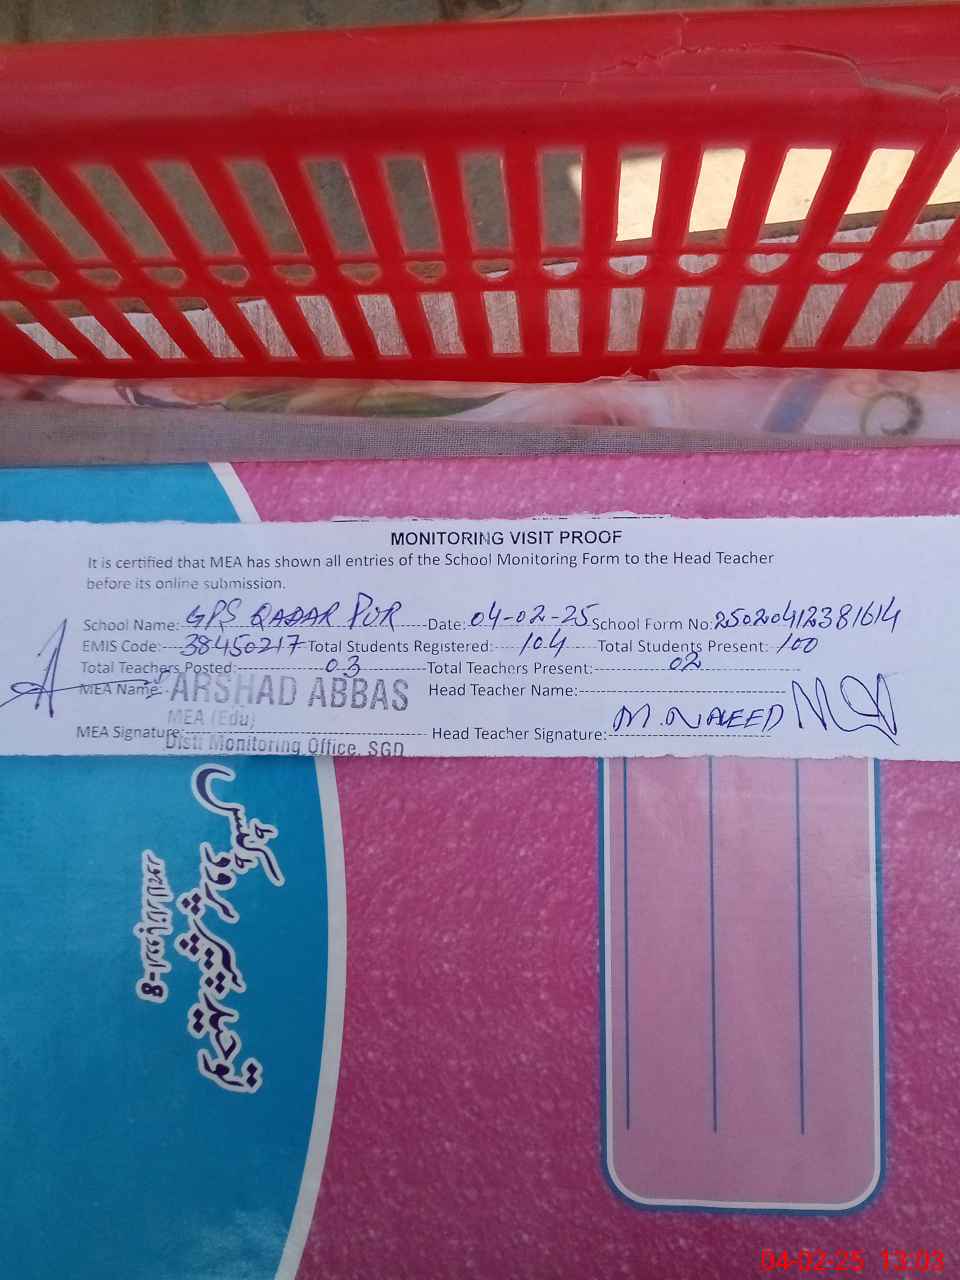 MONITORING VISIT PROOF
It is certified that MEA has shown all entries of the School Monitoring Form to the Head Teacher
before its online submission.
School Name: GPS QADAR PUR Date: 04-02-25 School Form No: 25020412381614
EMIS Code: 38450217 Total Students Registered: 104 Total Students Present: 100
Total Teachers Posted: 03 Total Teachers Present: 02
MEA Name: ARSHAD ABBAS Head Teacher Name:
MEA (Edu)
M. NAVEED
MEA Signature: Head Teacher Signature:
Distt Monitoring Office, SGD
توحید پیپر پروڈکٹس
8-اردو بازار لاہور
04-02-25 13:03